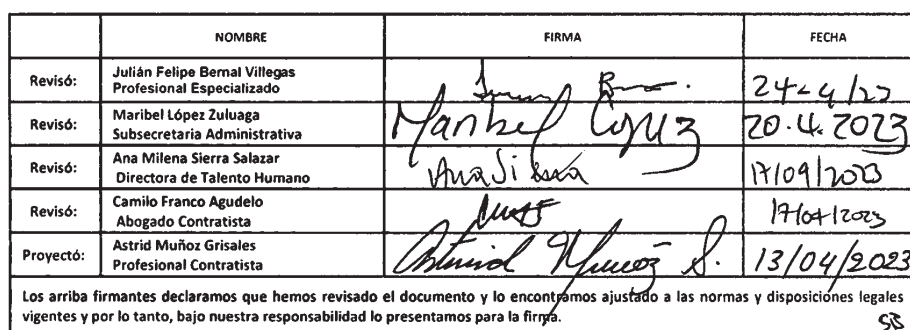 NOMBRE FIRMA FECHA
Revisó: Julián Felipe Bernal Villegas
Profesional Especializado
24-4/23
Revisó: Maribel López Zuluaga
Subsecretaria Administrativa
Maribel López 20.4.2023
Revisó: Ana Milena Sierra Salazar
Directora de Talento Humano
Ana Sierra 17/09/2023
Revisó: Camilo Franco Agudelo
Abogado Contratista
17/04/2023
Proyectó: Astrid Muñoz Grisales
Profesional Contratista
Astrid Muñoz G. 13/04/2023
Los arriba firmantes declaramos que hemos revisado el documento y lo encontramos ajustado a las normas y disposiciones legales
vigentes y por lo tanto, bajo nuestra responsabilidad lo presentamos para la firma.